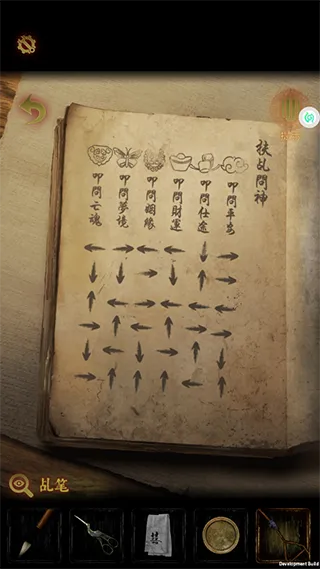 扶乩問神
叩問平安
叩問仕途
叩問財運
叩問姻緣
叩問夢境
叩問亡魂
乩笔
Development Build